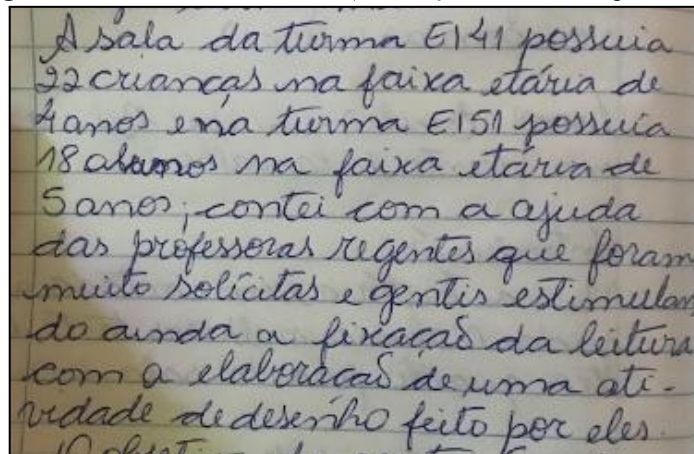 A sala da turma E141 possuia
22 crianças na faixa etária de
4 anos e na turma E151 possuia
18 alunos na faixa etária de
5 anos; contei com a ajuda
das professoras regentes que foram
muito solícitas e gentis estimulan
do ainda a fixação da leitura
com a elaboração de uma ati-
vidade de desenho feito por eles.